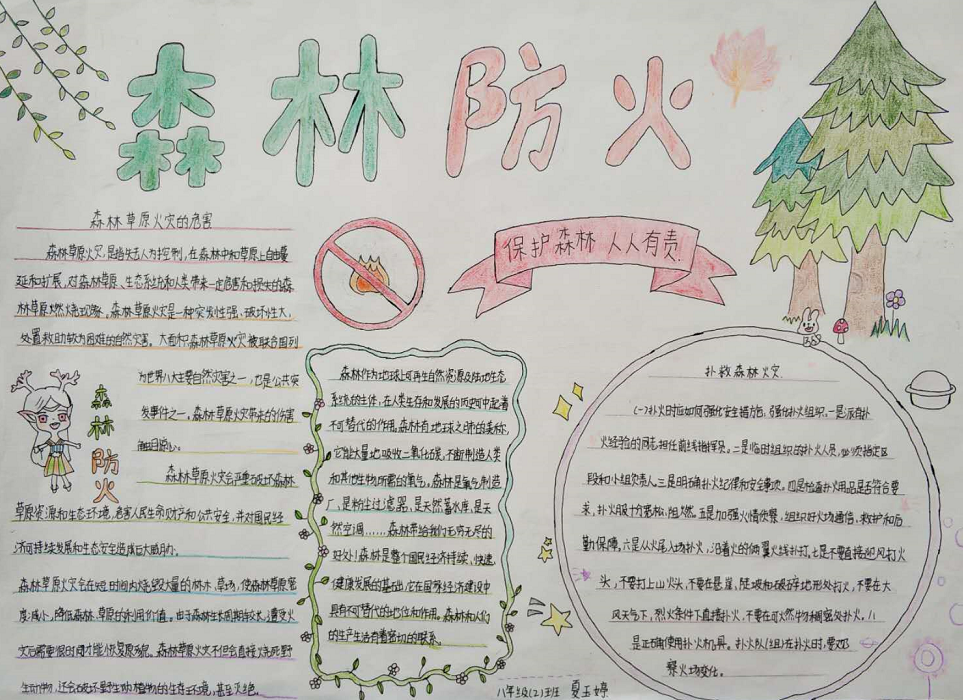 森林防火
保护森林 人人有责
森林草原火灾的危害
森林草原火灾,是指失去人为控制,在森林中和草原上自由蔓
延和扩展,对森林草原、生态系统和人类带来一定危害和损失的森
林草原燃烧现象。森林草原火灾是一种突发性强、破坏性大、
处置救助较为困难的自然灾害。大面积森林草原火灾被联合国列
为世界八大主要自然灾害之一,也是公共突
发事件之一。森林草原火灾带来的伤害
触目惊心。
森林草原火灾会严重破坏森林
草原资源和生态环境,危害人民生命财产和公共安全,并对国民经
济可持续发展和生态安全造成巨大威胁。
森林草原火灾会在短时间内烧毁大量的林木、草场,使森林草原密
度减小,降低森林、草原的利用价值。由于森林生长周期较长,遭受火
灾后需要很长时间才能恢复原貌。森林草原火灾不但会直接烧死野
生动物,还会破坏野生动植物的生存环境,甚至灭绝。
森林防火
森林作为地球上可再生自然资源及陆地生态
系统的主体,在人类生存和发展的历史中起着
不可替代的作用。森林有地球之肺的美称,
它能大量地吸收二氧化碳,不断制造人类
和其他生物所需的氧气。森林是氧气制造
厂,是粉尘过滤器,是天然蓄水库,是天
然空调……森林带给我们无穷无尽的
好处!森林是整个国民经济持续、快速、
健康发展的基础,它在国务经济建设中
具有不可替代的地位和作用。森林和人们
的生产生活有着密切的联系。
扑救森林火灾
(一)扑火时应如何强化安全措施:强化扑火组织。一是派有扑
火经验的同志担任前线指挥员。二是临时组织的扑火人员,必须指定区
段和小组负责人。三是明确扑火纪律和安全事项。四是检查扑火用品是否符合要
求。扑火服要宽松、阻燃。五是加强火情侦察,组织好火场通信、救护和后
勤保障。六是从火尾入场扑火,沿着火的两翼火线扑打。七是不要直接迎风打火
头,不要打上山火头,不要在悬崖、陡坡和破碎地形处打火,不要在大
风天气下、烈火条件下直接扑火,不要在可燃物稠密处扑火。八
是正确使用扑火机具。扑火队(组)在扑火时,要观
察火场变化。
八年级(2)班 夏玉婷